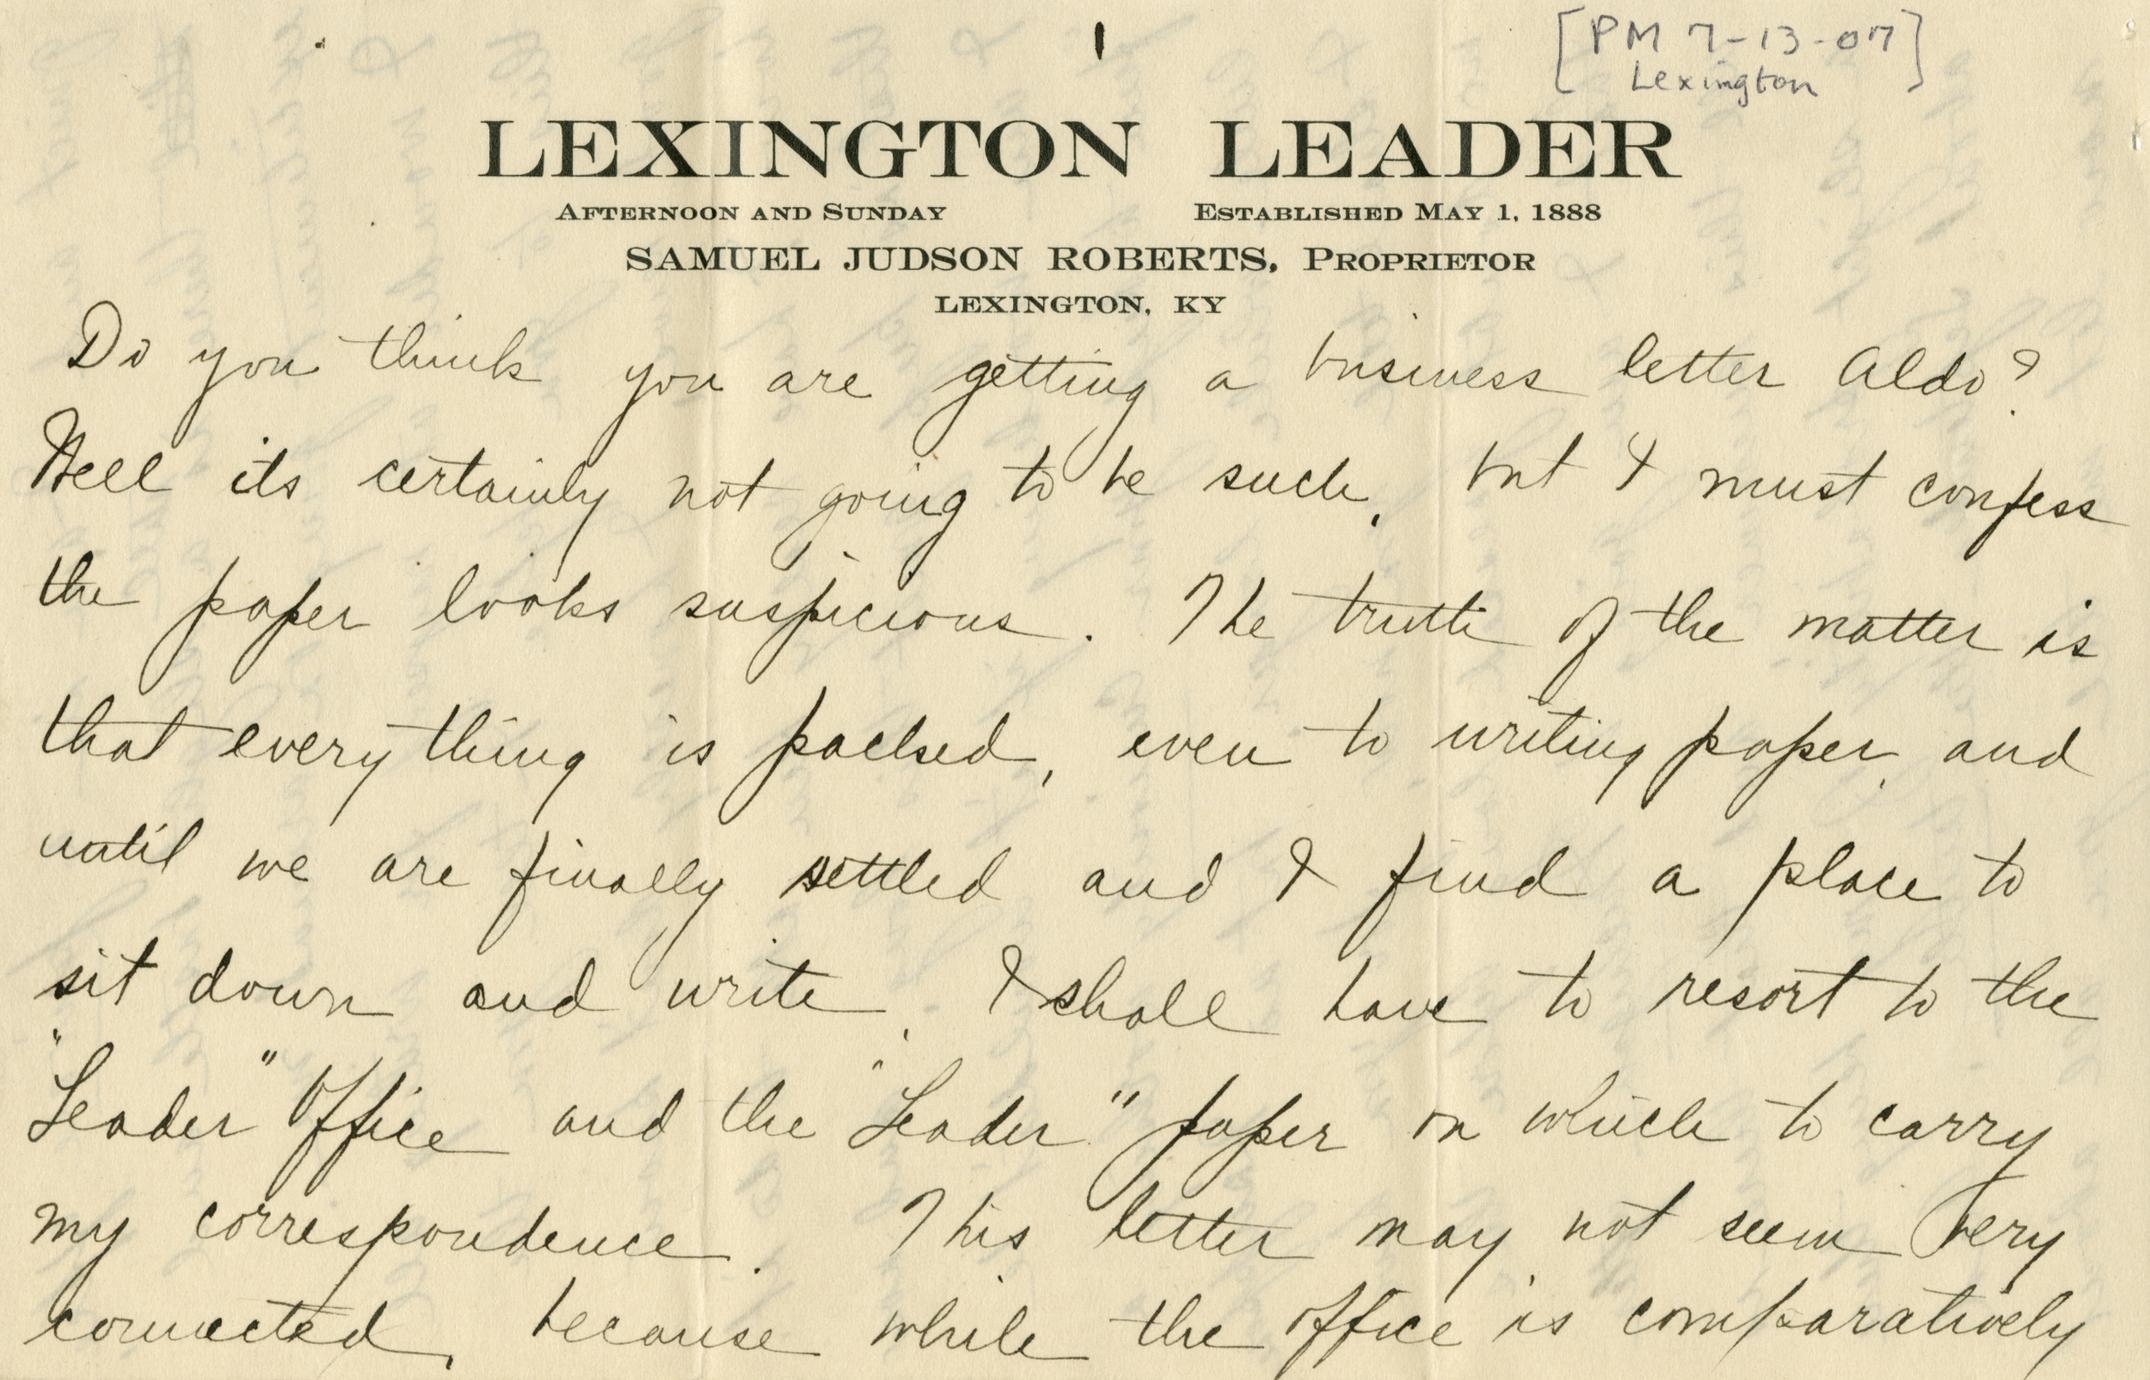 [PM 7-13-07]
Lexington
LEXINGTON LEADER
AFTERNOON AND SUNDAY ESTABLISHED MAY 1, 1888
SAMUEL JUDSON ROBERTS, PROPRIETOR
LEXINGTON, KY
Do you think you are getting a business letter Aldo?
Well its certainly not going to be such, but I must confess
the paper looks suspicious. The truth of the matter is
that everything is packed, even to writing paper, and
until we are finally settled and I find a place to
sit down and write, I shall have to resort to the
"Leader" Office and the "Leader" paper on which to carry
my correspondence. This letter may not seem very
connected, because while the office is comparatively